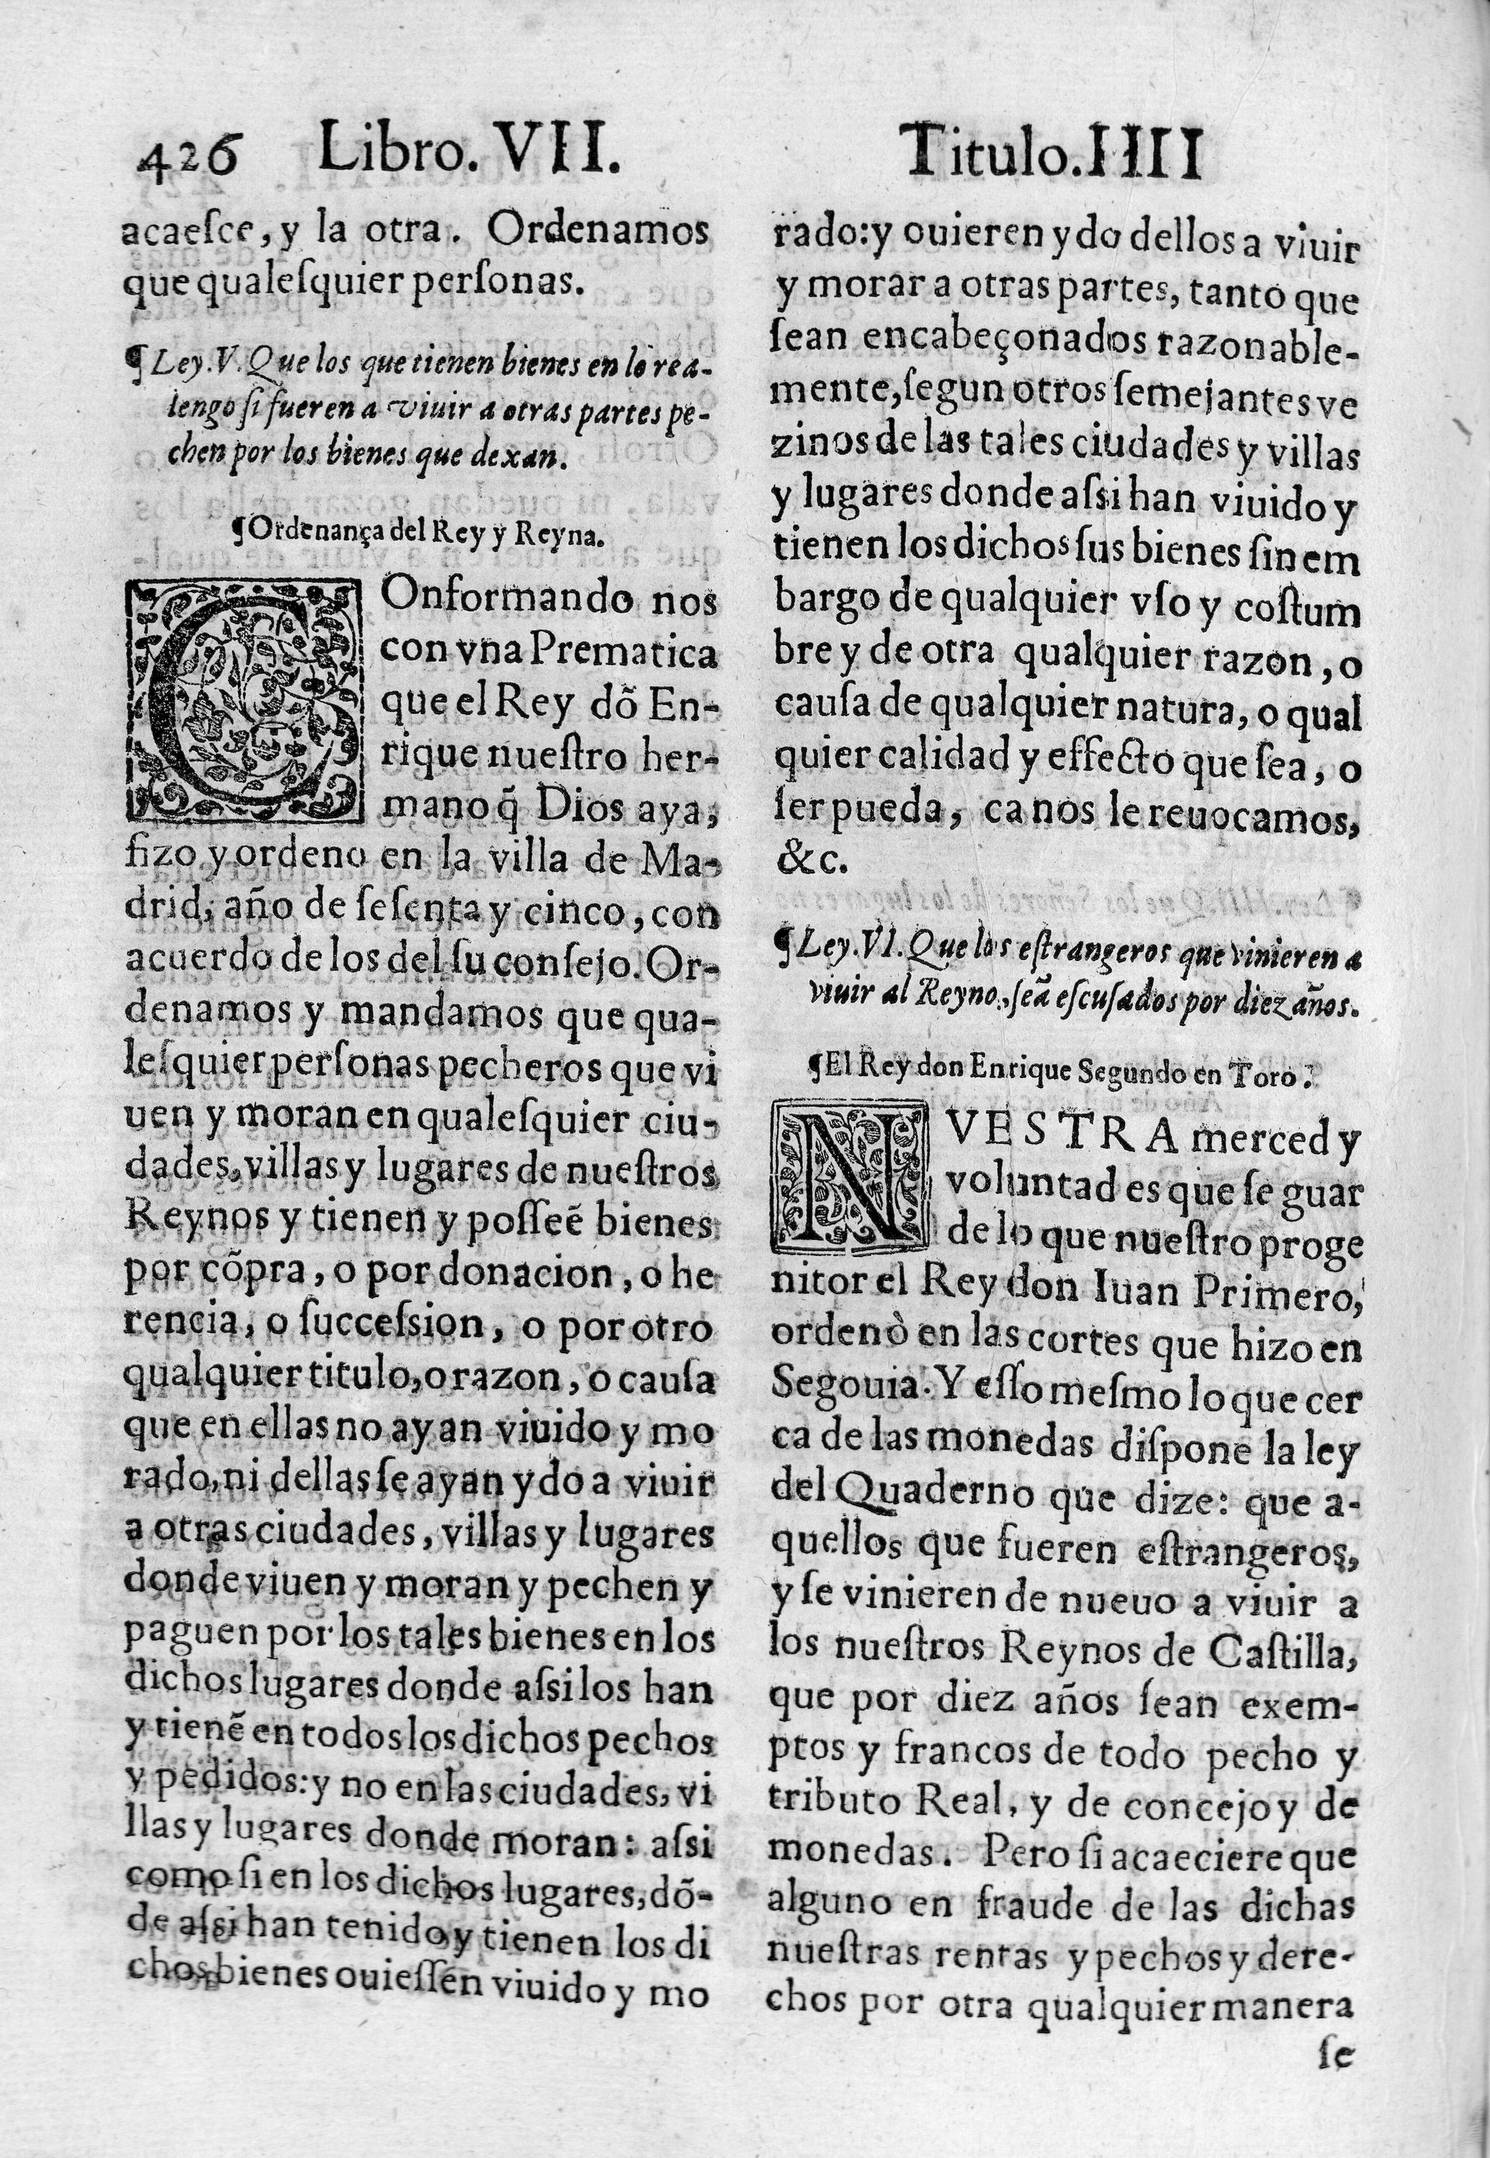 426 Libro. VII. Titulo. IIII
acaeſce, y la otra. Ordenamos
que qualeſquier perſonas.
¶ Ley. V. Que los que tienen bienes en lo rea-
lengo ſi fueren a viuir a otras partes pe-
chen por los bienes que dexan.
¶Ordenança del Rey y Reyna.
COnformando nos
con vna Prematica
que el Rey dõ En-
rique nueſtro her-
mano q̃ Dios aya,
fizo y ordeno en la villa de Ma-
drid, año de ſeſenta y cinco, con
acuerdo de los del ſu conſejo. Or-
denamos y mandamos que qua-
leſquier perſonas pecheros que vi
uen y moran en qualeſquier ciu-
dades, villas y lugares de nueſtros
Reynos y tienen y poſſeẽ bienes
por cõpra, o por donacion, o he
rencia, o ſucceſsion, o por otro
qualquier titulo, o razon, o cauſa
que en ellas no ayan viuido y mo
rado, ni dellas ſe ayan ydo a viuir
a otras ciudades, villas y lugares
donde viuen y moran y pechen y
paguen por los tales bienes en los
dichos lugares donde aſsi los han
y tienẽ en todos los dichos pechos
y pedidos: y no en las ciudades, vi
llas y lugares donde moran: aſsi
como ſi en los dichos lugares, dõ-
de aſsi han tenido y tienen los di
chos bienes ouieſſen viuido y mo
rado: y ouieren ydo dellos a viuir
y morar a otras partes, tanto que
ſean encabeçonados razonable-
mente, ſegun otros ſemejantes ve
zinos de las tales ciudades y villas
y lugares donde aſsi han viuido y
tienen los dichos ſus bienes ſin em
bargo de qualquier vſo y coſtum
bre y de otra qualquier razon, o
cauſa de qualquier natura, o qual
quier calidad y effecto que ſea, o
ſer pueda, ca nos le reuocamos,
&c.
¶ Ley. VI. Que los eſtrangeros que vinieren a
viuir al Reyno, ſeã eſcuſados por diez años.
¶El Rey don Enrique Segundo en Toro.
NVESTRA merced y
voluntad es que ſe guar
de lo que nueſtro proge
nitor el Rey don Iuan Primero,
ordenò en las cortes que hizo en
Segouia. Y eſſo meſmo lo que cer
ca de las monedas diſpone la ley
del Quaderno que dize: que a-
quellos que fueren eſtrangeros,
y ſe vinieren de nueuo a viuir a
los nueſtros Reynos de Caſtilla,
que por diez años ſean exem-
ptos y francos de todo pecho y
tributo Real, y de concejo y de
monedas. Pero ſi acaeciere que
alguno en fraude de las dichas
nueſtras rentas y pechos y dere-
chos por otra qualquier manera
ſe